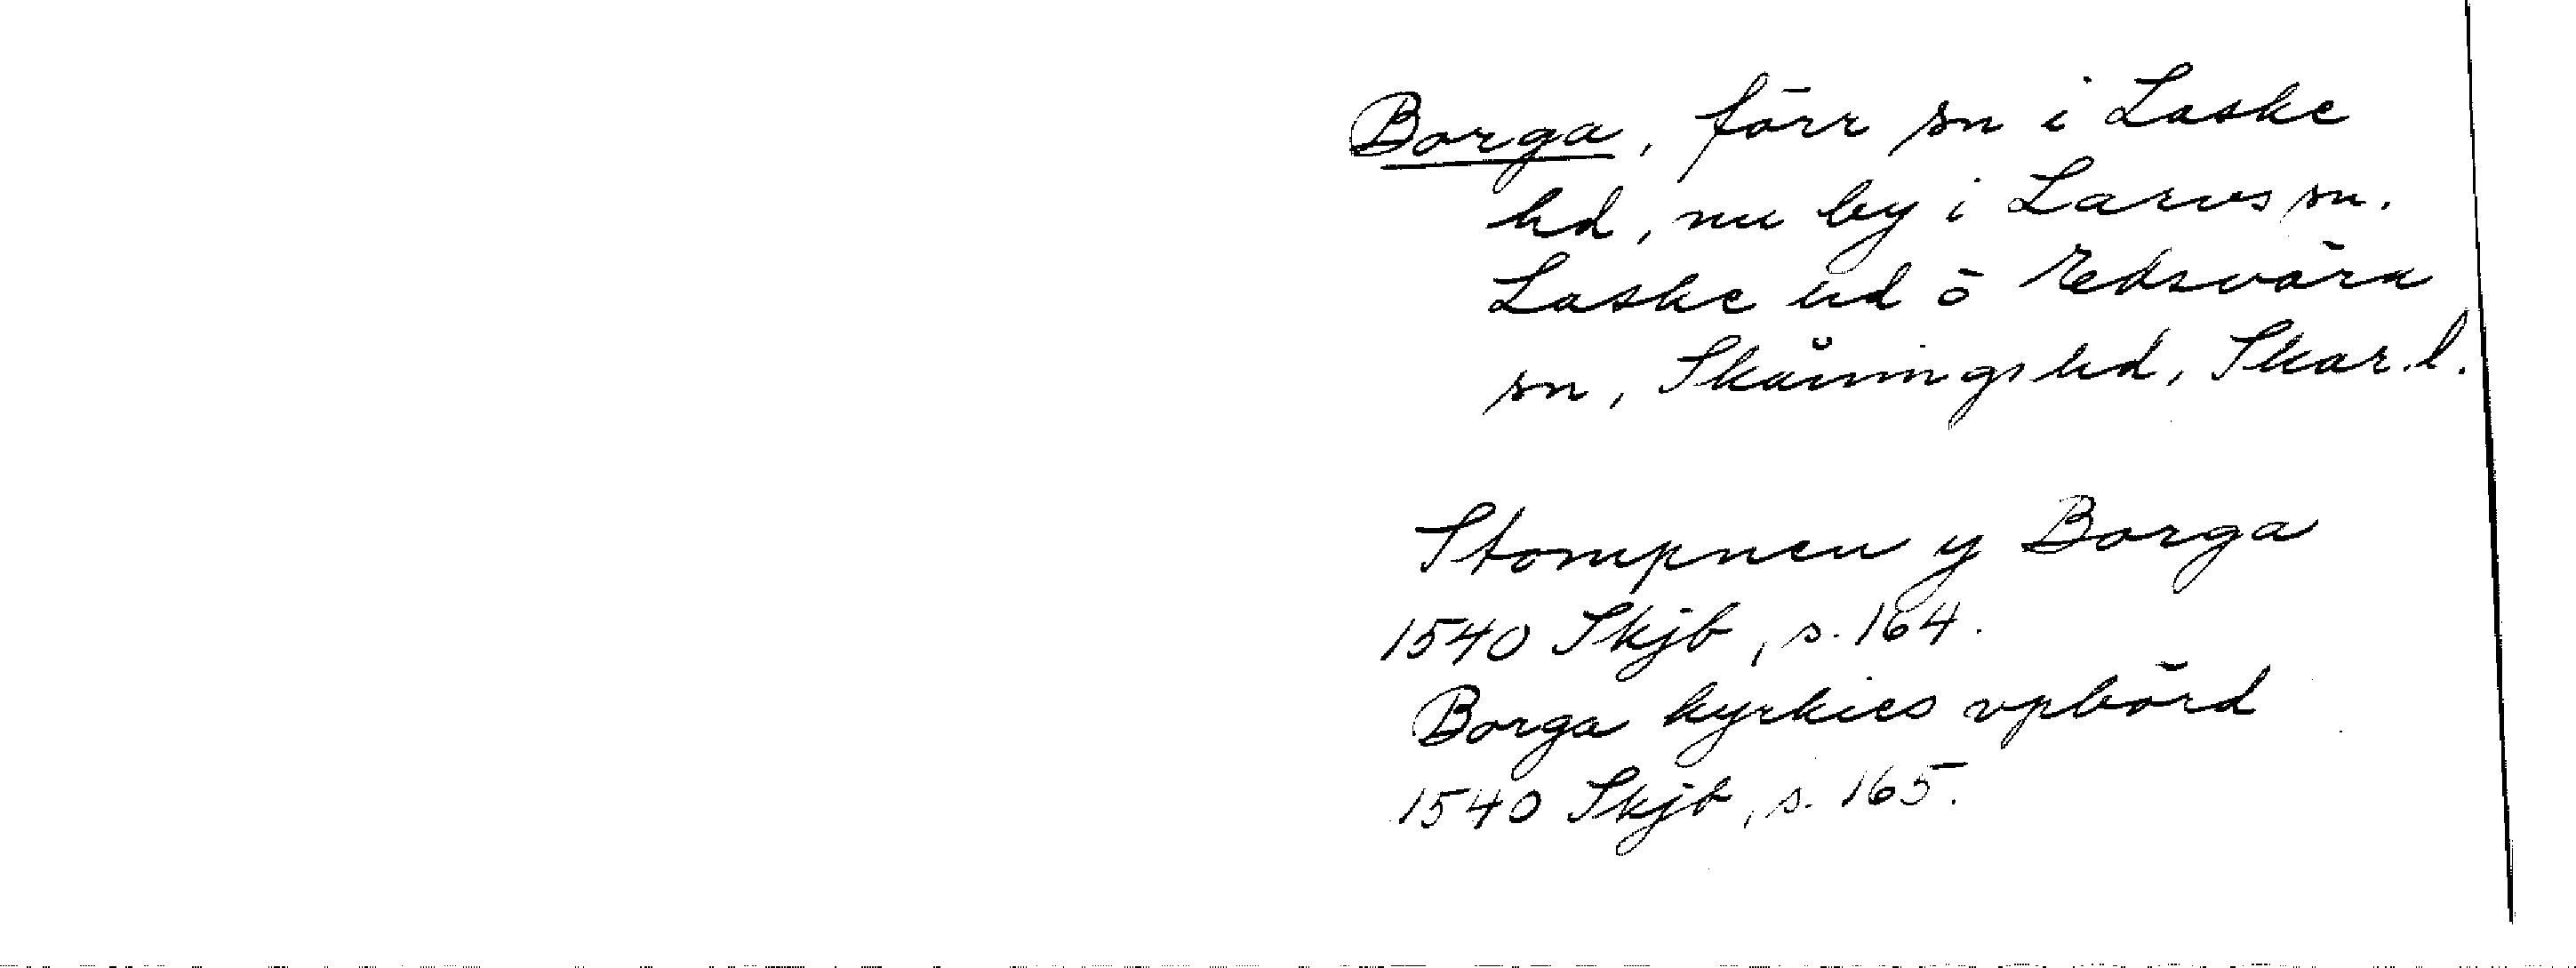 Borga, förr sn i Laske
hd, nu by i Larvs sn.
Laske hd o Edsvära
sn, Skånings hd, Skar. l.
Stompnen y Borga
1540 Skjb, s. 164.
Borga kyrkies vpbörd
1540 Skjb, s. 165.